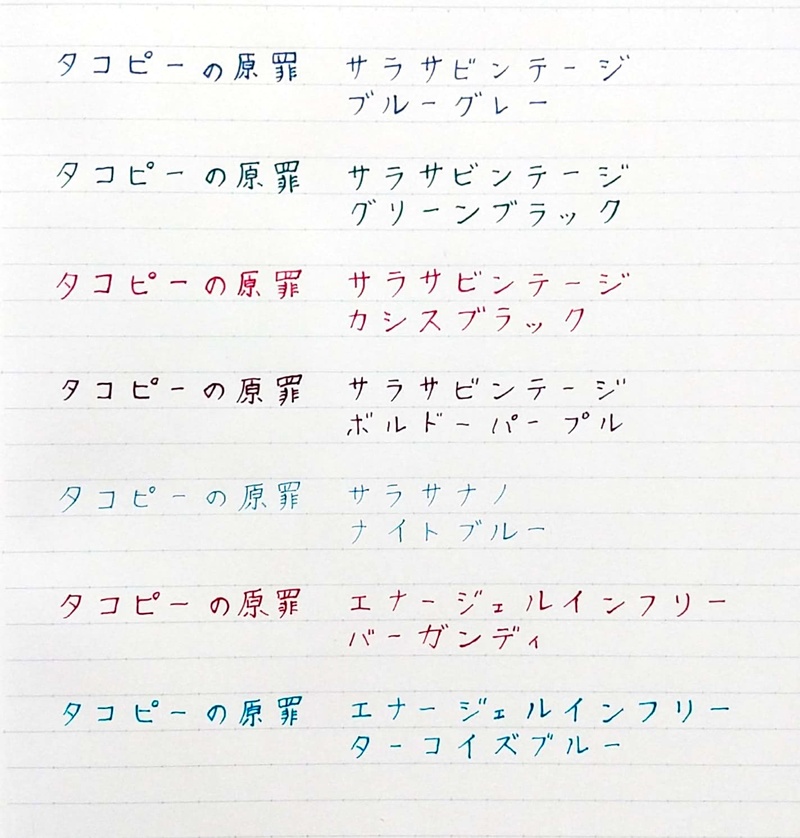 タコピーの原罪 サラサビンテージ
ブルーグレー
タコピーの原罪 サラサビンテージ
グリーンブラック
タコピーの原罪 サラサビンテージ
カシスブラック
タコピーの原罪 サラサビンテージ
ボルドーパープル
タコピーの原罪 サラサナノ
ナイトブルー
タコピーの原罪 エナージェルインフリー
バーガンディ
タコピーの原罪 エナージェルインフリー
ターコイズブルー